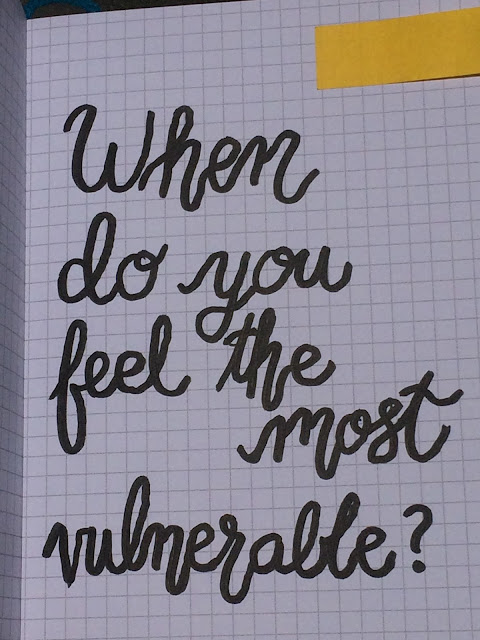 When
do you
feel the
most
vulnerable?